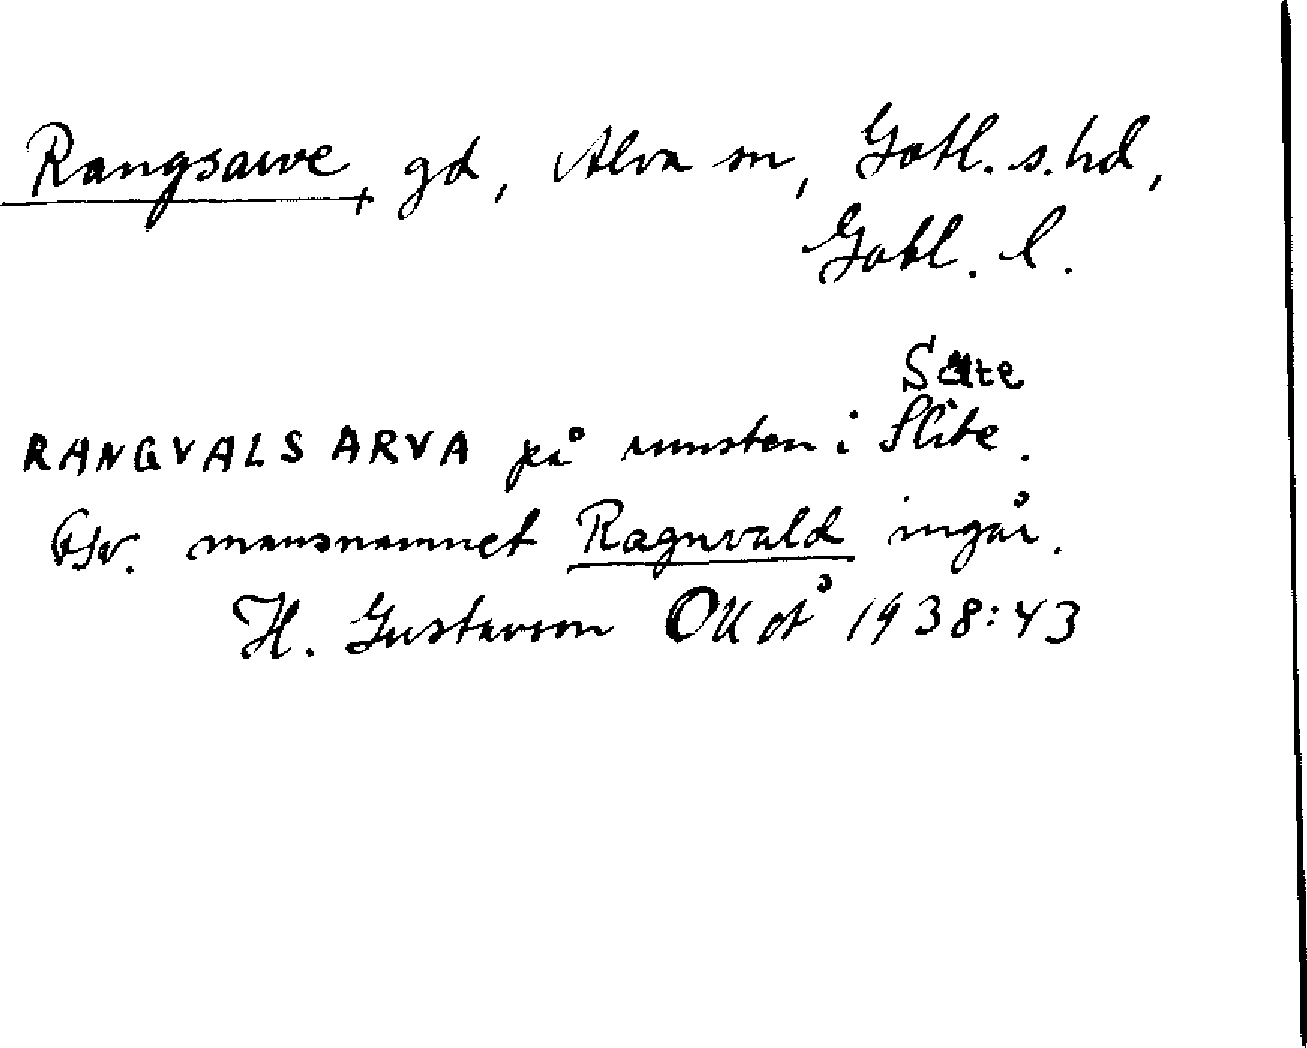 Rangsarve, gd, Alva sn, Gotl. s. hd,
Gotl. l.
Sate
RANGVALS ARVA på runsten i Slite.
Fsv. mansnamnet Ragnvald ingår.
H. Gustavson OUOÅ 1938:43